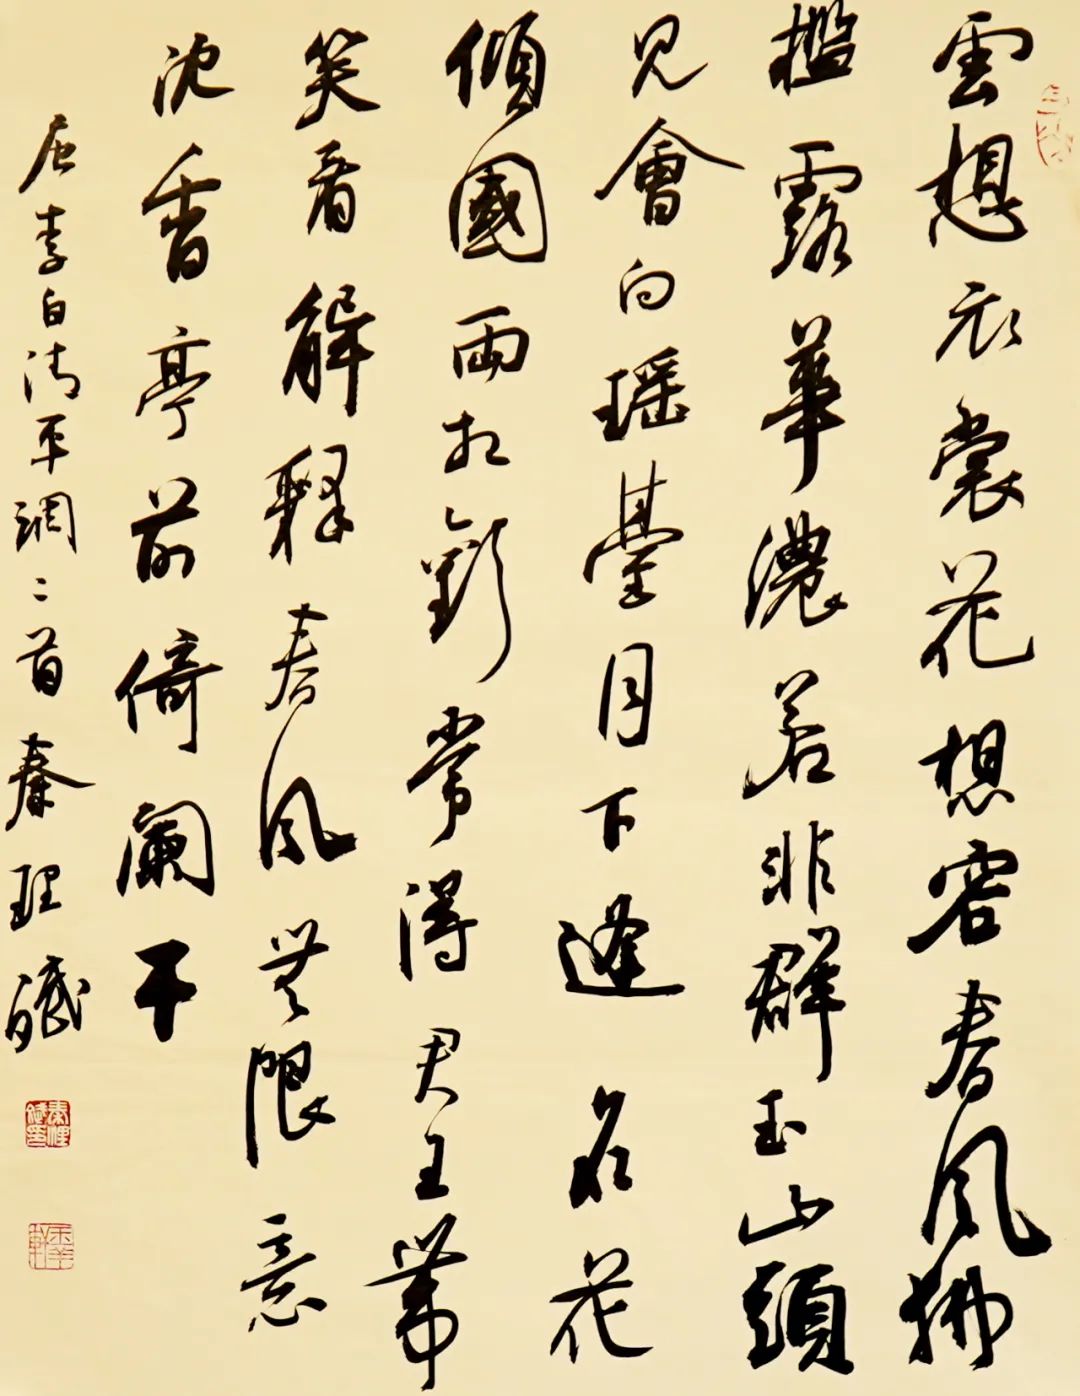 雲想衣裳花想容春風拂
檻露華濃若非群玉山頭
見會向瑤臺月下逢名花
傾國兩相歡常得君王帶
笑看解釋春風無限意
沈香亭前倚闌干
唐李白清平調二首秦理斌
秦理斌印